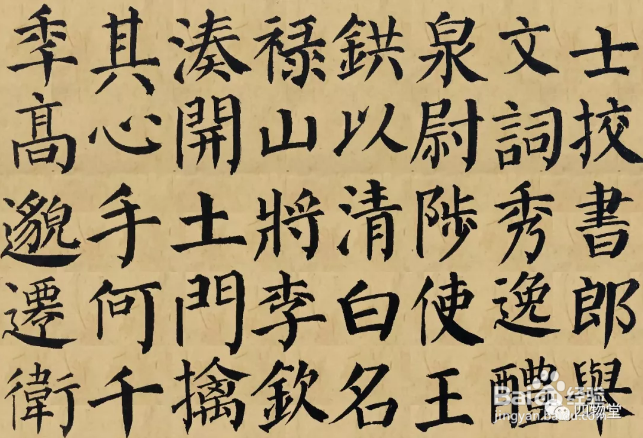 士挍書郎與
文詞秀逸醴
泉尉陟使王
鉷以清白名
禄山將李欽
湊開土門擒
其心手何千
秊髙邈遷衛
Baidu经验
jingyan.baidu.com